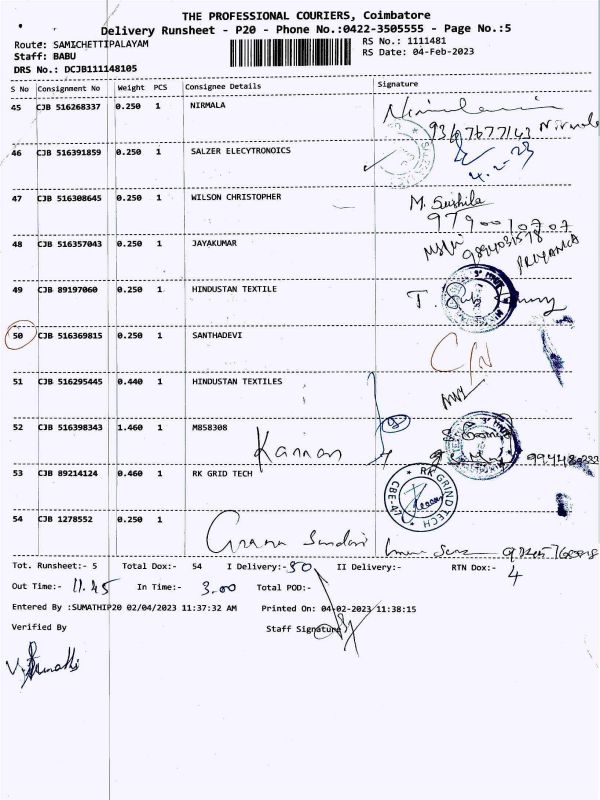 THE PROFESSIONAL COURIERS, Coimbatore
Delivery Runsheet - P20 - Phone No.:0422-3505555 - Page No.:5
Route: SAMICHETTIPALAYAM
RS No.: 1111481
Staff: BABU
RS Date: 04-Feb-2023
DRS No.: DCJB111148105
S No Consignment No Weight PCS Consignee Details Signature
45 CJB 516268337 0.250 1 NIRMALA
9367677143 Nirmala
46 CJB 516391859 0.250 1 SALZER ELECYTRONOICS
4-2-23
47 CJB 516308645 0.250 1 WILSON CHRISTOPHER M. Sushila
9790010707
48 CJB 516357043 0.250 1 JAYAKUMAR
9894031578
PRIYANKA
49 CJB 89197060 0.250 1 HINDUSTAN TEXTILE
50 CJB 516369815 0.250 1 SANTHADEVI C/N
51 CJB 516295445 0.440 1 HINDUSTAN TEXTILES
52 CJB 516398343 1.460 1 M858308
Kannan
53 CJB 89214124 0.460 1 RK GRID TECH
RK GRIND TECH
CBE-47
54 CJB 1278552 0.250 1
Gnana Sundari
Tot. Runsheet:- 5 Total Dox:- 54 I Delivery:- 50 II Delivery:- RTN Dox:- 4
Out Time:- 11.45 In Time:- 3.00 Total POD:-
Entered By :SUMATHIP20 02/04/2023 11:37:32 AM Printed On: 04-02-2023 11:38:15
Verified By Staff Signature
V. Sumathi